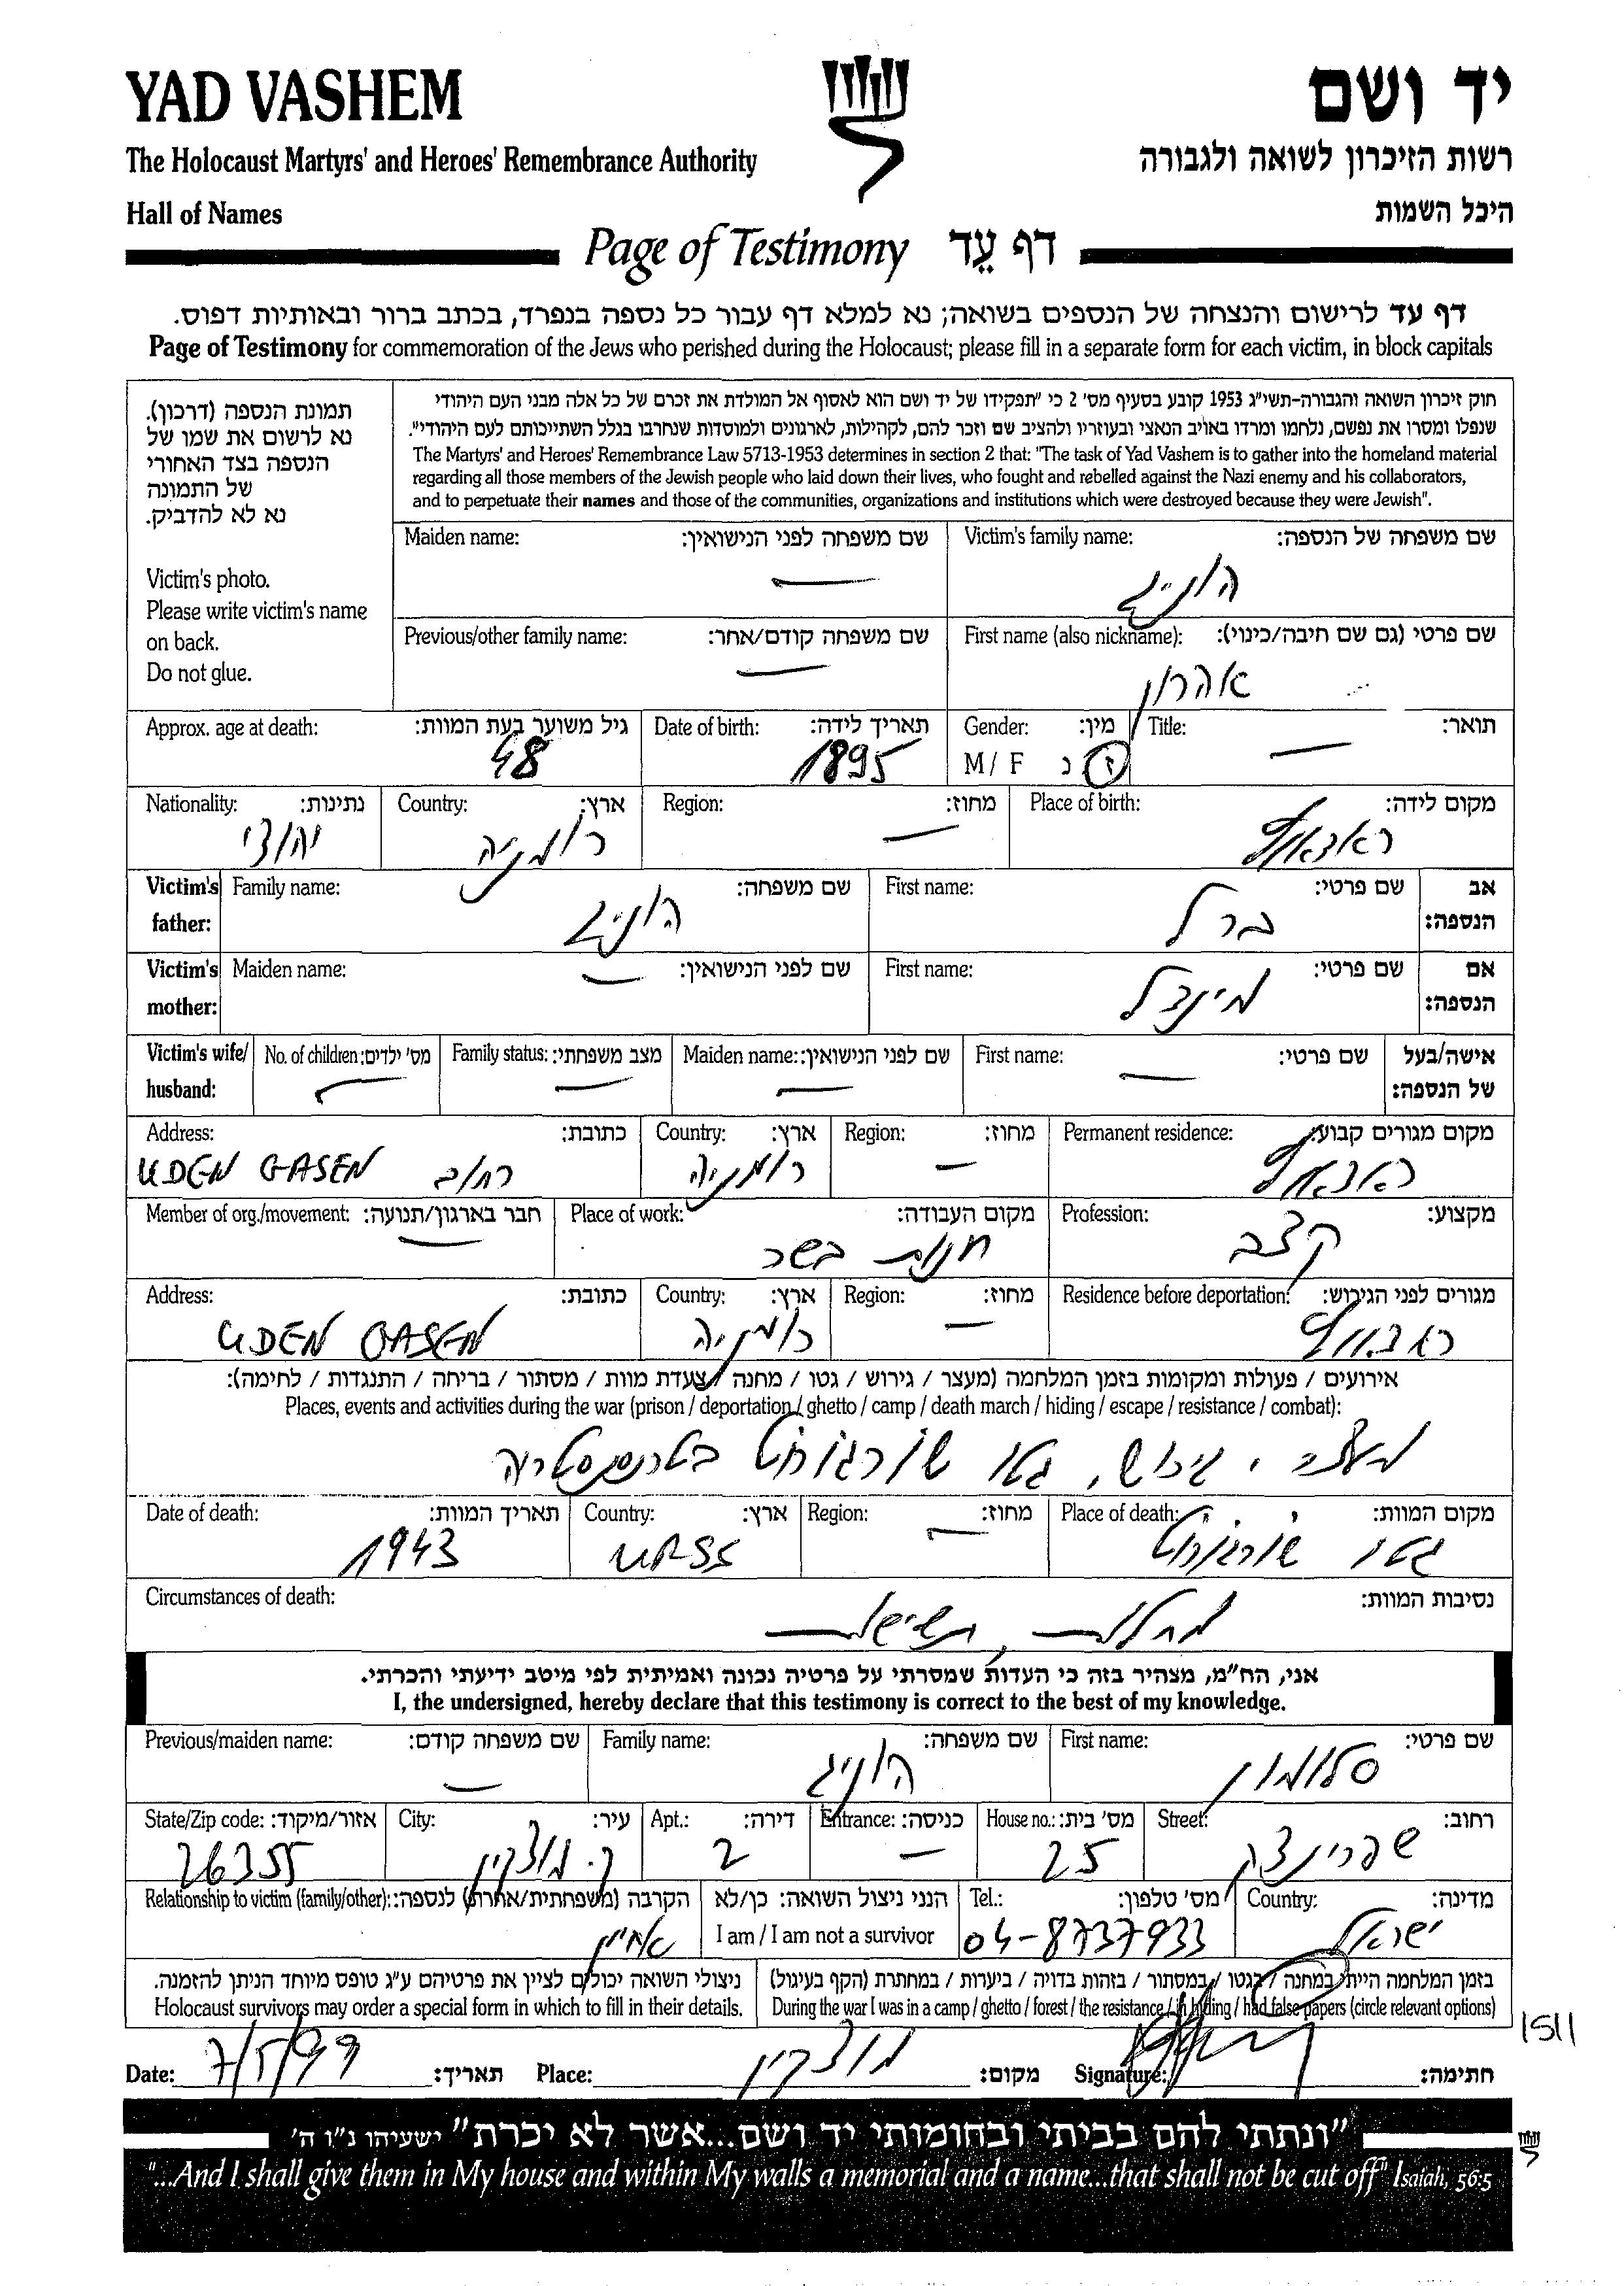 YAD VASHEM יד ושם
The Holocaust Martyrs' and Heroes' Remembrance Authority רשות הזיכרון לשואה ולגבורה
Hall of Names היכל השמות
Page of Testimony דף עֵד
דף עד לרישום והנצחה של הנספים בשואה; נא למלא דף עבור כל נספה בנפרד, בכתב ברור ובאותיות דפוס.
Page of Testimony for commemoration of the Jews who perished during the Holocaust; please fill in a separate form for each victim, in block capitals
תמונת הנספה (דרכון).
נא לרשום את שמו של
הנספה בצד האחורי
של התמונה
נא לא להדביק.
Victim's photo.
Please write victim's name
on back.
Do not glue.
חוק זיכרון השואה והגבורה-תשי"ג 1953 קובע בסעיף מס' 2 כי "תפקידו של יד ושם הוא לאסוף אל המולדת את זכרם של כל אלה מבני העם היהודי
שנפלו ומסרו את נפשם, נלחמו ומרדו באויב הנאצי ובעוזריו ולהציב שם וזכר להם, לקהילות, לארגונים ולמוסדות שנחרבו בגלל השתייכותם לעם היהודי".
The Martyrs' and Heroes' Remembrance Law 5713-1953 determines in section 2 that: "The task of Yad Vashem is to gather into the homeland material
regarding all those members of the Jewish people who laid down their lives, who fought and rebelled against the Nazi enemy and his collaborators,
and to perpetuate their names and those of the communities, organizations and institutions which were destroyed because they were Jewish".
Victim's family name: שם משפחה של הנספה:
הוניג
Maiden name: שם משפחה לפני הנישואין:
—
First name (also nickname): שם פרטי (גם שם חיבה/כינוי):
אהרון
Previous/other family name: שם משפחה קודם/אחר:
—
Title: תואר:
—
Gender: מין:
M / F ז נ
Date of birth: תאריך לידה:
1895
Approx. age at death: גיל משוער בעת המוות:
48
Place of birth: מקום לידה:
ראדאוץ
Region: מחוז:
—
Country: ארץ:
רומניה
Nationality: נתינות:
יהודי
Victim's father: אב הנספה:
First name: שם פרטי:
ברל
Family name: שם משפחה:
הוניג
Victim's mother: אם הנספה:
First name: שם פרטי:
מינדל
Maiden name: שם לפני הנישואין:
—
Victim's wife/ husband: אישה/בעל של הנספה:
First name: שם פרטי:
—
Maiden name: שם לפני הנישואין:
—
Family status: מצב משפחתי:
—
No. of children: מס' ילדים:
—
Permanent residence: מקום מגורים קבוע:
ראדאוץ
Region: מחוז:
—
Country: ארץ:
רומניה
Address: כתובת:
רחוב UDEN GASEN
Profession: מקצוע:
קצב
Place of work: מקום העבודה:
חנות בשר
Member of org./movement: חבר בארגון/תנועה:
—
Residence before deportation: מגורים לפני הגירוש:
Region: מחוז:
—
Country: ארץ:
רומניה
Address: כתובת:
UDEN GASEN
אירועים / פעולות ומקומות בזמן המלחמה (מעצר / גירוש / גטו / מחנה / צעדת מוות / מסתור / בריחה / התנגדות / לחימה):
Places, events and activities during the war (prison / deportation / ghetto / camp / death march / hiding / escape / resistance / combat):
גירוש, גטו שורגורוט בטרנסניסטריה
Place of death: מקום המוות:
גטו שורגורוט
Region: מחוז:
—
Country: ארץ:
URSS
Date of death: תאריך המוות:
1943
Circumstances of death: נסיבות המוות:
מחלות, תשישות
אני, הח"מ, מצהיר בזה כי העדות שמסרתי על פרטיה נכונה ואמיתית לפי מיטב ידיעתי והכרתי.
I, the undersigned, hereby declare that this testimony is correct to the best of my knowledge.
First name: שם פרטי:
סלומון
Family name: שם משפחה:
הוניג
Previous/maiden name: שם משפחה קודם:
—
Street: רחוב:
שפרינצק
House no.: מס' בית:
25
Entrance: כניסה:
—
Apt.: דירה:
2
City: עיר:
ק. מוצקין
State/Zip code: אזור/מיקוד:
26355
Country: מדינה:
ישראל
Tel.: מס' טלפון:
04-8737933
הנני ניצול השואה: כן/לא
I am / I am not a survivor
Relationship to victim (family/other): הקרבה (משפחתית/אחרת) לנספה:
אחיין
בזמן המלחמה הייתי במחנה / בגטו / במסתור / בזהות בדויה / ביערות / במחתרת (הקף בעיגול)
During the war I was in a camp / ghetto / forest / the resistance / in hiding / had false papers (circle relevant options)
ניצולי השואה יכולים לציין את פרטיהם ע"ג טופס מיוחד הניתן להזמנה.
Holocaust survivors may order a special form in which to fill in their details.
1511
Date: 7/5/99 תאריך: Place: מוצקין מקום: Signature: חתימה:
"ונתתי להם בביתי ובחומותי יד ושם...אשר לא יכרת" ישעיהו נ"ו ה'
"...And I shall give them in My house and within My walls a memorial and a name...that shall not be cut off" Isaiah, 56:5